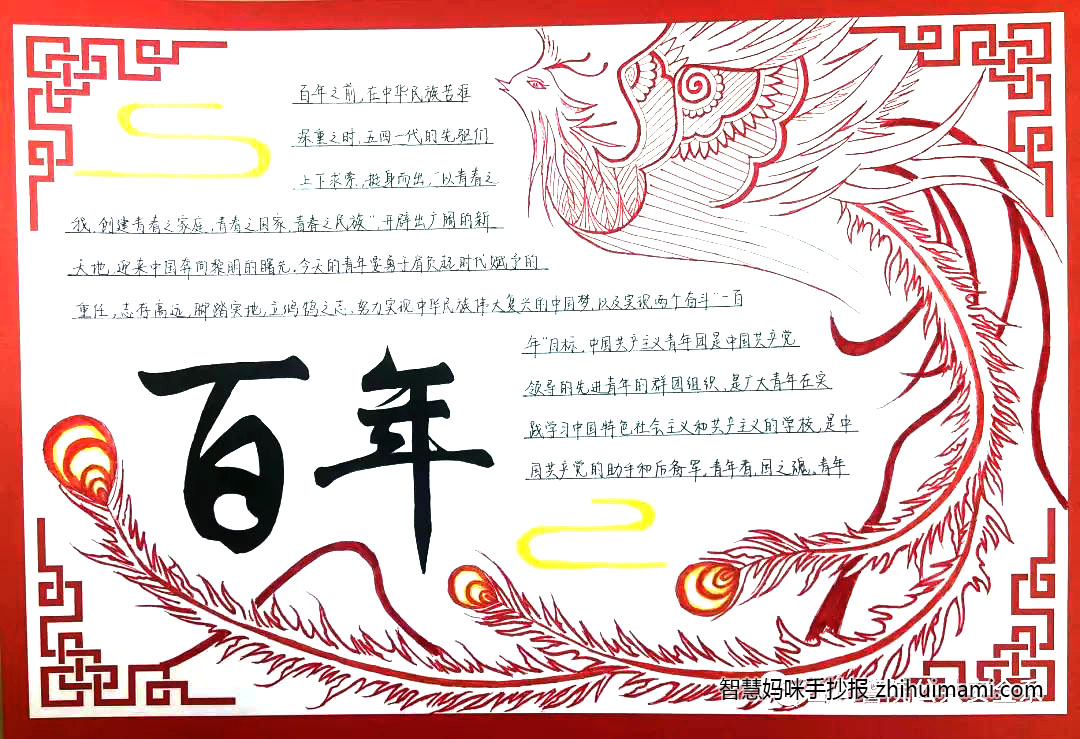 百年之前，在中华民族苦难
深重之时，五四一代的先驱们
上下求索，挺身而出，“以青春之
我，创建青春之家庭，青春之国家，青春之民族”，开辟出广阔的新
天地，迎来中国奔向黎明的曙光，今天的青年要勇于肩负起时代赋予的
重任，志存高远，脚踏实地，立鸿鹄之志，努力实现中华民族伟大复兴的中国梦，以及实现两个奋斗“一百
年”目标，中国共产主义青年团是中国共产党
领导的先进青年的群团组织，是广大青年在实
践学习中国特色社会主义和共产主义的学校，是中
国共产党的助手和后备军。青年者，国之魂。青年
百年
智慧妈咪手抄报 zhihuimami.com